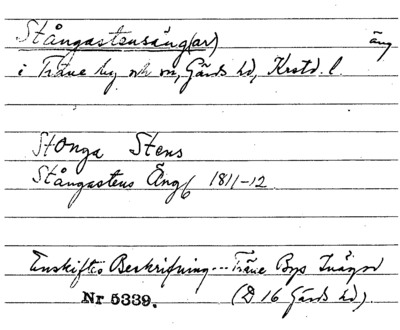 Stångastensäng(ar) äng
i Träne by och sn, Gärds hd, Krstd. l.
Stonga Stens
Stångastens Äng 1811-12
Enskiftes Beskrifning... Träne Bys Inägor
Nr 5339. (D 16 Gärds hd).